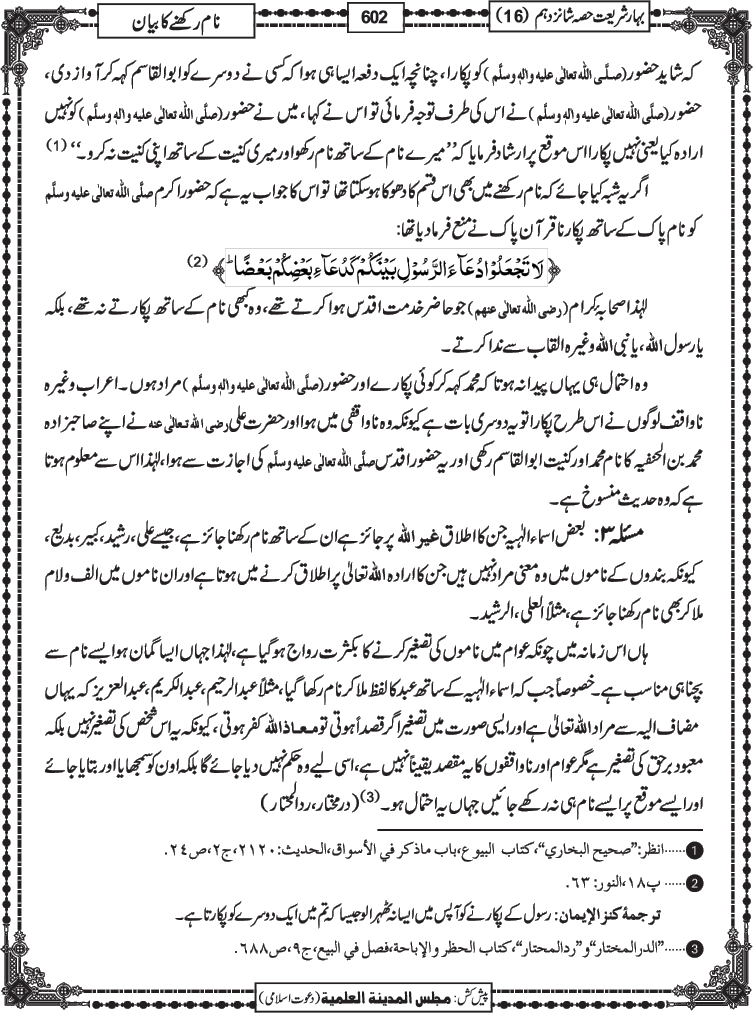 بہارشریعت حصہ شانزدہم (16)
602
نام رکھنے کا بیان
کہ شاید حضور (صلَّی اللہ تعالٰی علیہ واٰلہٖ وسلَّم) کو پکارا، چنانچہ ایک دفعہ ایسا ہی ہوا کہ کسی نے دوسرے کو ابوالقاسم کہہ کر آواز دی،
حضور (صلَّی اللہ تعالٰی علیہ واٰلہٖ وسلَّم) نے اس کی طرف توجہ فرمائی تو اس نے کہا، میں نے حضور (صلَّی اللہ تعالٰی علیہ واٰلہٖ وسلَّم) کو نہیں
ارادہ کیا یعنی نہیں پکارا اس موقع پر ارشاد فرمایا کہ ’’میرے نام کے ساتھ نام رکھو اور میری کنیت کے ساتھ اپنی کنیت نہ کرو۔‘‘ (1)
اگر یہ شبہ کیا جائے کہ نام رکھنے میں بھی اس قسم کا دھوکا ہو سکتا تھا تو اس کا جواب یہ ہے کہ حضور اکرم صلَّی اللہ تعالٰی علیہ واٰلہٖ وسلَّم
کو نام پاک کے ساتھ پکارنا قرآن پاک نے منع فرما دیا تھا:
﴿لَا تَجْعَلُوْا دُعَآءَ الرَّسُوْلِ بَیْنَكُمْ كَدُعَآءِ بَعْضِكُمْ بَعْضًاؕ﴾ (2)
لہٰذا صحابۂ کرام (رضی اللہ تعالٰی عنہم) جو حاضر خدمت اقدس ہوا کرتے تھے، وہ کبھی نام کے ساتھ پکارتے نہ تھے، بلکہ
یارسول اللہ، یا نبی اللہ وغیرہ القاب سے ندا کرتے۔
وہ احتمال ہی یہاں پیدا نہ ہوتا کہ محمد کہہ کر کوئی پکارے اور حضور (صلَّی اللہ تعالٰی علیہ واٰلہٖ وسلَّم) مراد ہوں۔ اعراب وغیرہ
ناواقف لوگوں نے اس طرح پکارا تو یہ دوسری بات ہے کیونکہ وہ ناواقفی میں ہوا اور حضرت علی رضی اللہ تعالٰی عنہ نے اپنے صاحبزادہ
محمد بن الحنفیہ کا نام محمد اور کنیت ابوالقاسم رکھی اور یہ حضور اقدس صلَّی اللہ تعالٰی علیہ واٰلہٖ وسلَّم کی اجازت سے ہوا، لہٰذا اس سے معلوم ہوتا
ہے کہ وہ حدیث منسوخ ہے۔
مسئلہ ۳: بعض اسماءِ الٰہیہ جن کا اطلاق غیر اللہ پر جائز ہے ان کے ساتھ نام رکھنا جائز ہے، جیسے علی، رشید، کبیر، بدیع،
کیونکہ بندوں کے ناموں میں وہ معنی مراد نہیں ہیں جن کا ارادہ اللہ تعالیٰ پر اطلاق کرنے میں ہوتا ہے اور ان ناموں میں الف و لام
ملا کر بھی نام رکھنا جائز ہے، مثلاً العلی، الرشید۔
ہاں اس زمانہ میں چونکہ عوام میں ناموں کی تصغیر کرنے کا بکثرت رواج ہو گیا ہے، لہٰذا جہاں ایسا گمان ہو ایسے نام سے
بچنا ہی مناسب ہے۔ خصوصاً جب کہ اسماءِ الٰہیہ کے ساتھ عبد کا لفظ ملا کر نام رکھا گیا، مثلاً عبدالرحیم، عبدالکریم، عبدالعزیز کہ یہاں
مضاف الیہ سے مراد اللہ تعالیٰ ہے اور ایسی صورت میں تصغیر اگر قصداً ہوتی تو معاذاللہ کفر ہوتی، کیونکہ یہ اس شخص کی تصغیر نہیں بلکہ
معبود برحق کی تصغیر ہے مگر عوام اور ناواقفوں کا یہ مقصد یقیناً نہیں ہے، اسی لیے وہ حکم نہیں دیا جائے گا بلکہ اون کو سمجھایا اور بتایا جائے
اور ایسے موقع پر ایسے نام ہی نہ رکھے جائیں جہاں یہ احتمال ہو۔ (3) (درمختار، ردالمحتار)
1 ......انظر: ”صحیح البخاري“، کتاب البیوع، باب ماذکر في الأسواق، الحدیث: ۲۱۲۰، ج۲، ص۲۴.
2 ...... پ۱۸، النور: ۶۳.
ترجمۂ کنز الإیمان: رسول کے پکارنے کو آپس میں ایسا نہ ٹھہرا لو جیسا کہ تم میں ایک دوسرے کو پکارتا ہے۔
3 ......”الدرالمختار“ و ”ردالمحتار“، کتاب الحظر والإباحة، فصل في البیع، ج۹، ص۶۸۸.
پیش کش: مجلس المدینة العلمیة (دعوت اسلامی)